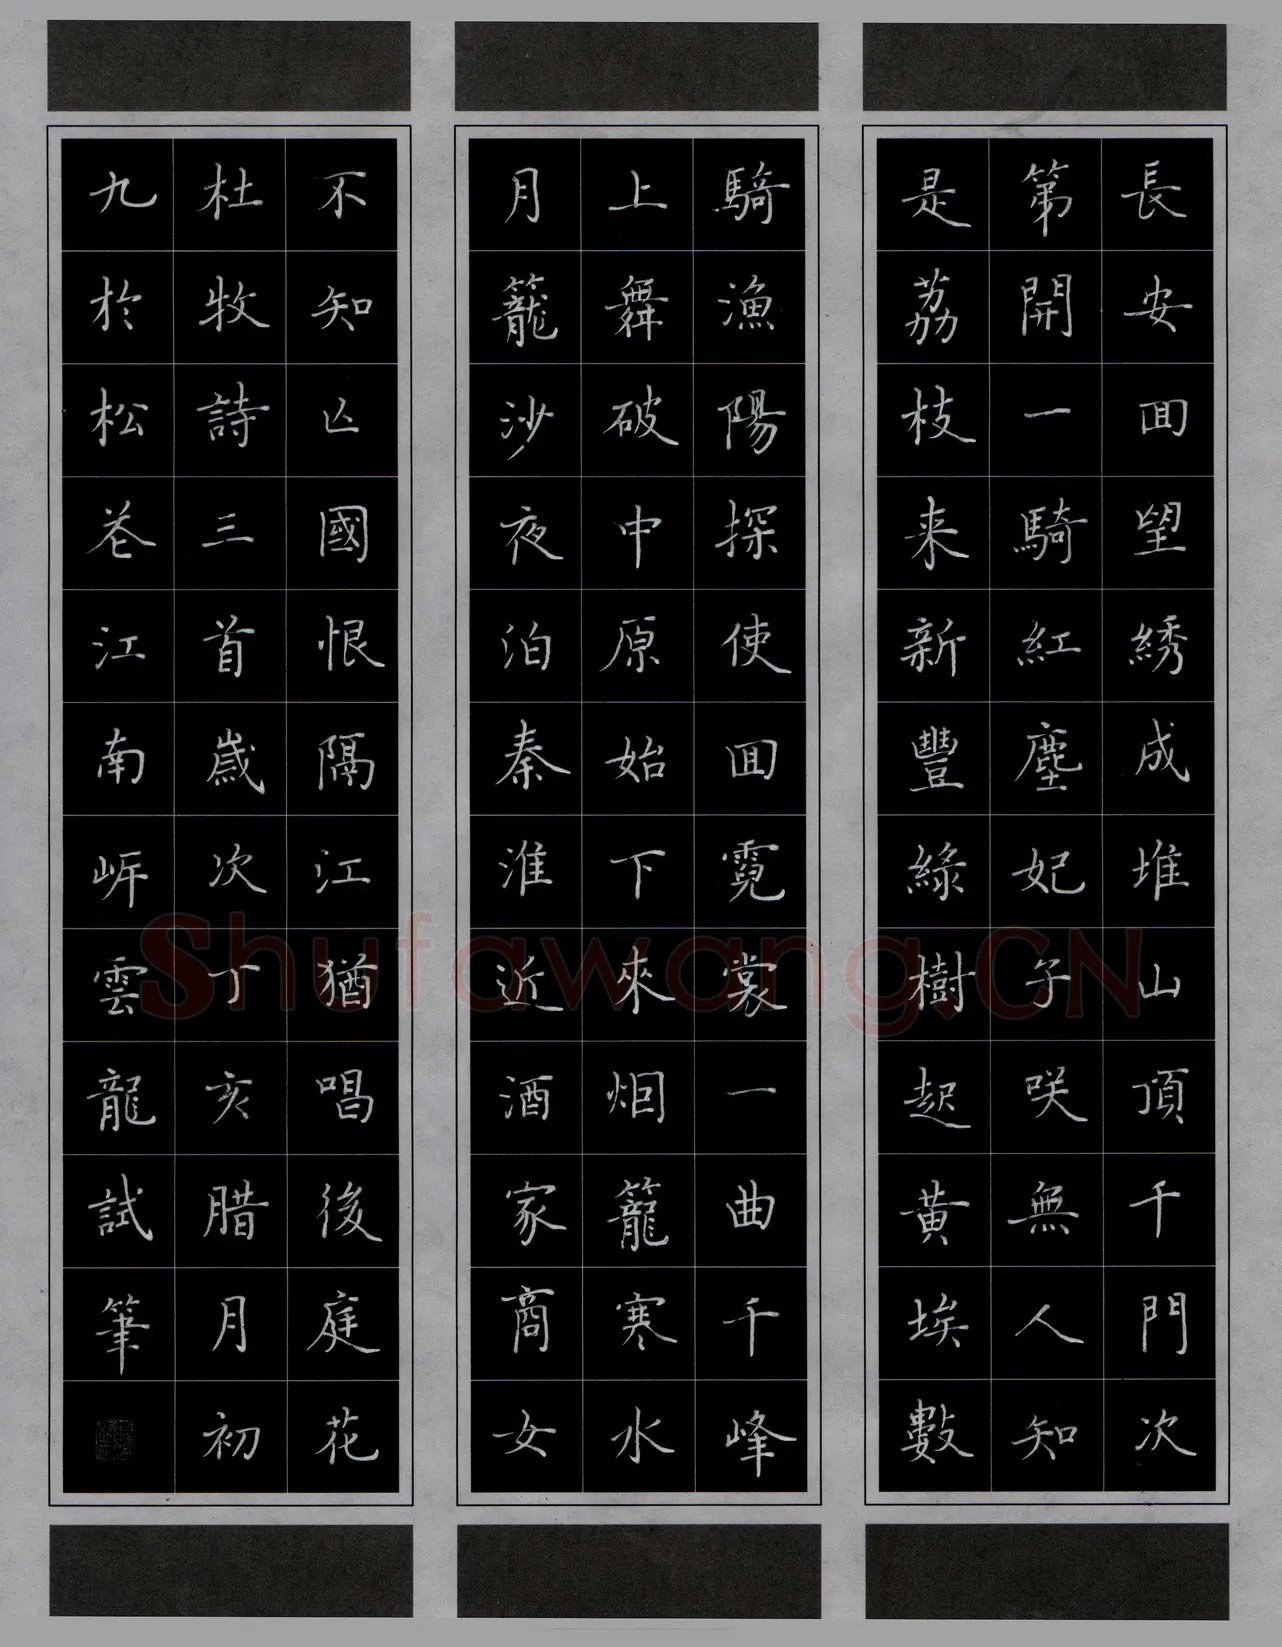 長安回望綉成堆山頂千門次
第開一騎紅塵妃子咲無人知
是荔枝来新豐綠樹起黃埃數
騎漁陽探使回霓裳一曲千峰
上舞破中原始下來烟籠寒水
月籠沙夜泊秦淮近酒家商女
不知亾國恨隔江猶唱後庭花
杜牧詩三首歲次丁亥腊月初
九於松巷江南岸雲龍試筆
Shufawang.CN